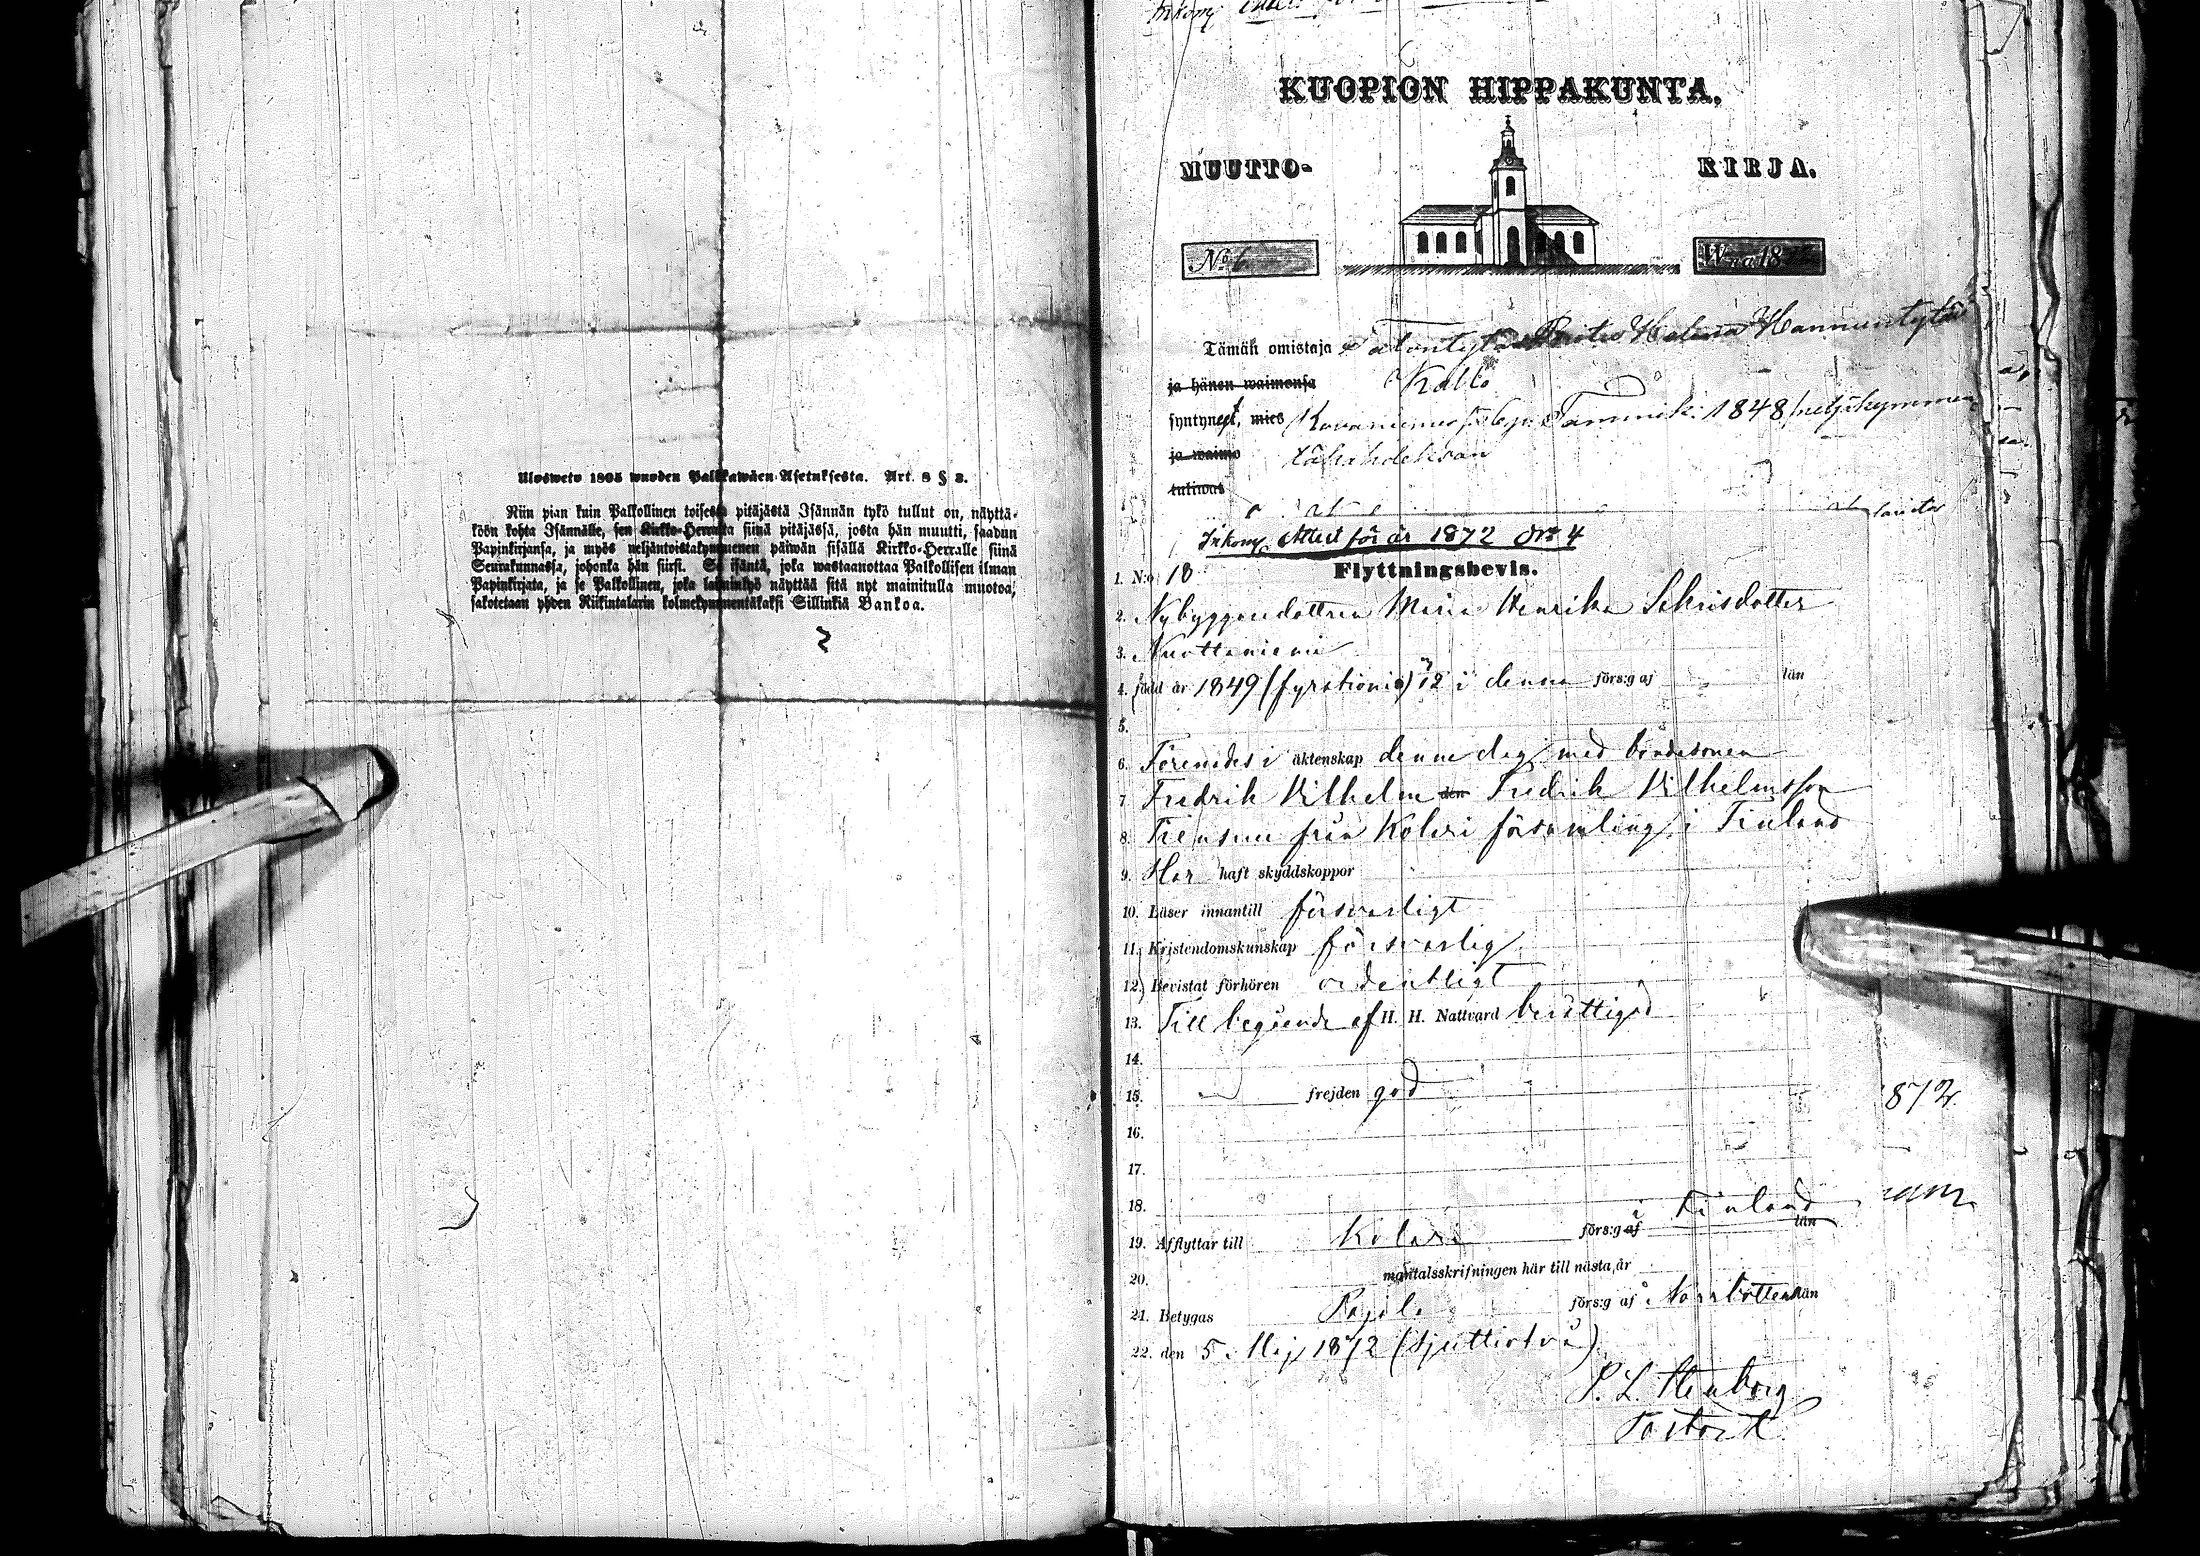 Ulosweto 1805 wuoden Palkkawäen Asetuksesta. Art. 8 § 3.
Niin pian kuin Palkollinen toisesta pitäjästä Isännän tykö tullut on, näyttä-
köön kohta Isännälle, sen Kirkko-Herralta siinä pitäjässä, josta hän muutti, saadun
Papinkirjansa, ja myös neljäntoistakymmenen päiwän sisällä Kirkko-Herralle siinä
Seurakunnassa, johonka hän siirsi. Se isäntä, joka wastaanottaa Palkollisen ilman
Papinkirjata, ja se Palkollinen, joka laiminlyö näyttää sitä nyt mainitulla muotoa,
sakotetaan yhden Riikintalarin kolmekymmentäkaksi Sillinkiä Bankoa.
KUOPION HIPPAKUNTA.
MUUTTO- KIRJA.
No 6 Wna 18
Tämän omistaja Talontytär Helena Hannuntytär
ja hänen waimonsa Kallo
syntynyt, mies 1848
ja waimo
tuliwat
Inkom. Attest för år 1872 No 4
Flyttningsbevis.
1. N:o 18
2. Nybyggaredottren Henrika
3. Nuottaniemi
4. född år 1849 (fyrationio) 12 i denna förs:g af län
5.
6. Förenades i äktenskap denna dag med bondesonen
7. Fredrik Vilhelm den Fredrik Vilhelmsson
8. från Kolari församling i Finland
9. Har haft skyddskoppor
10. Läser innantill försvarligt
11. Kristendomskunskap försvarlig
12. Bevistat förhören ordentligt
13. Till begående af H. H. Nattvard berättigad
14.
15. frejden god
872
16.
17.
18.
19. Afflyttar till Kolari förs:g af i Finland län
20. mantalsskrifningen här till nästa år
21. Betygas Pajala förs:g af Norrbottens län
22. den 5 Maj 1872 (sjuttiotvå)
P. L. Stenborg
Pastor